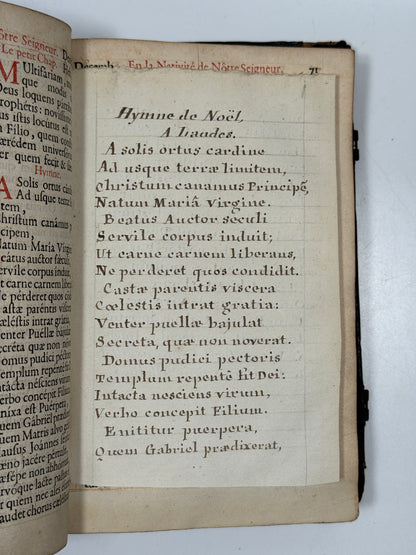 ôtre Seigneur.
Le petit Chap.
MUltifáriam
que modis
Deus loquens
prophétis: novissimè
bus istis locutus est
n Filio, quem const
ærédem universó
er quem fecit &
Hymne.
A Solis ortus
Ad usque terræ
tem,
Christum canámus
cipem,
Natum María Virgin
eátus auctor sǽculi
Servile corpus índuit;
Ut carne carnem líb
Ne pérderet quos cóndi
astæ paréntis víscera
Cœléstis intrat grátia:
Venter Puéllæ bájulat
Secréta quæ non nóverat
Domus pudíci péctoris
Templum repénte fit D
ntácta nésciens virum
Verbo concépit Fílium.
níxa est Puérpera,
uem Gábriel prædíx
uem Matris alvo g
lausus Joánnes
œno jacére pértul
ræsépe non abhór
rvóque lacte pastus
er quem nec ales
audet chorus cæl
Décemb. En la Nativité de Nôtre Seigneur. 71
Hymne de Noël,
A Laudes.
A solis ortus cardine
Ad usque terræ limitem,
Christum canamus Principē,
Natum Mariâ Virgine.
Beatus Auctor seculi
Servile corpus induit;
Ut carne carnem liberans,
Ne perderet quos condidit.
Castæ parentis viscera
Cœlestis intrat gratia:
Venter puellæ bajulat
Secreta, quæ non noverat.
Domus pudici pectoris
Templum repentè fit Dei:
Intacta nesciens virum,
Verbo concepit Filium.
Enititur puerpera,
Quem Gabriel prædixerat,